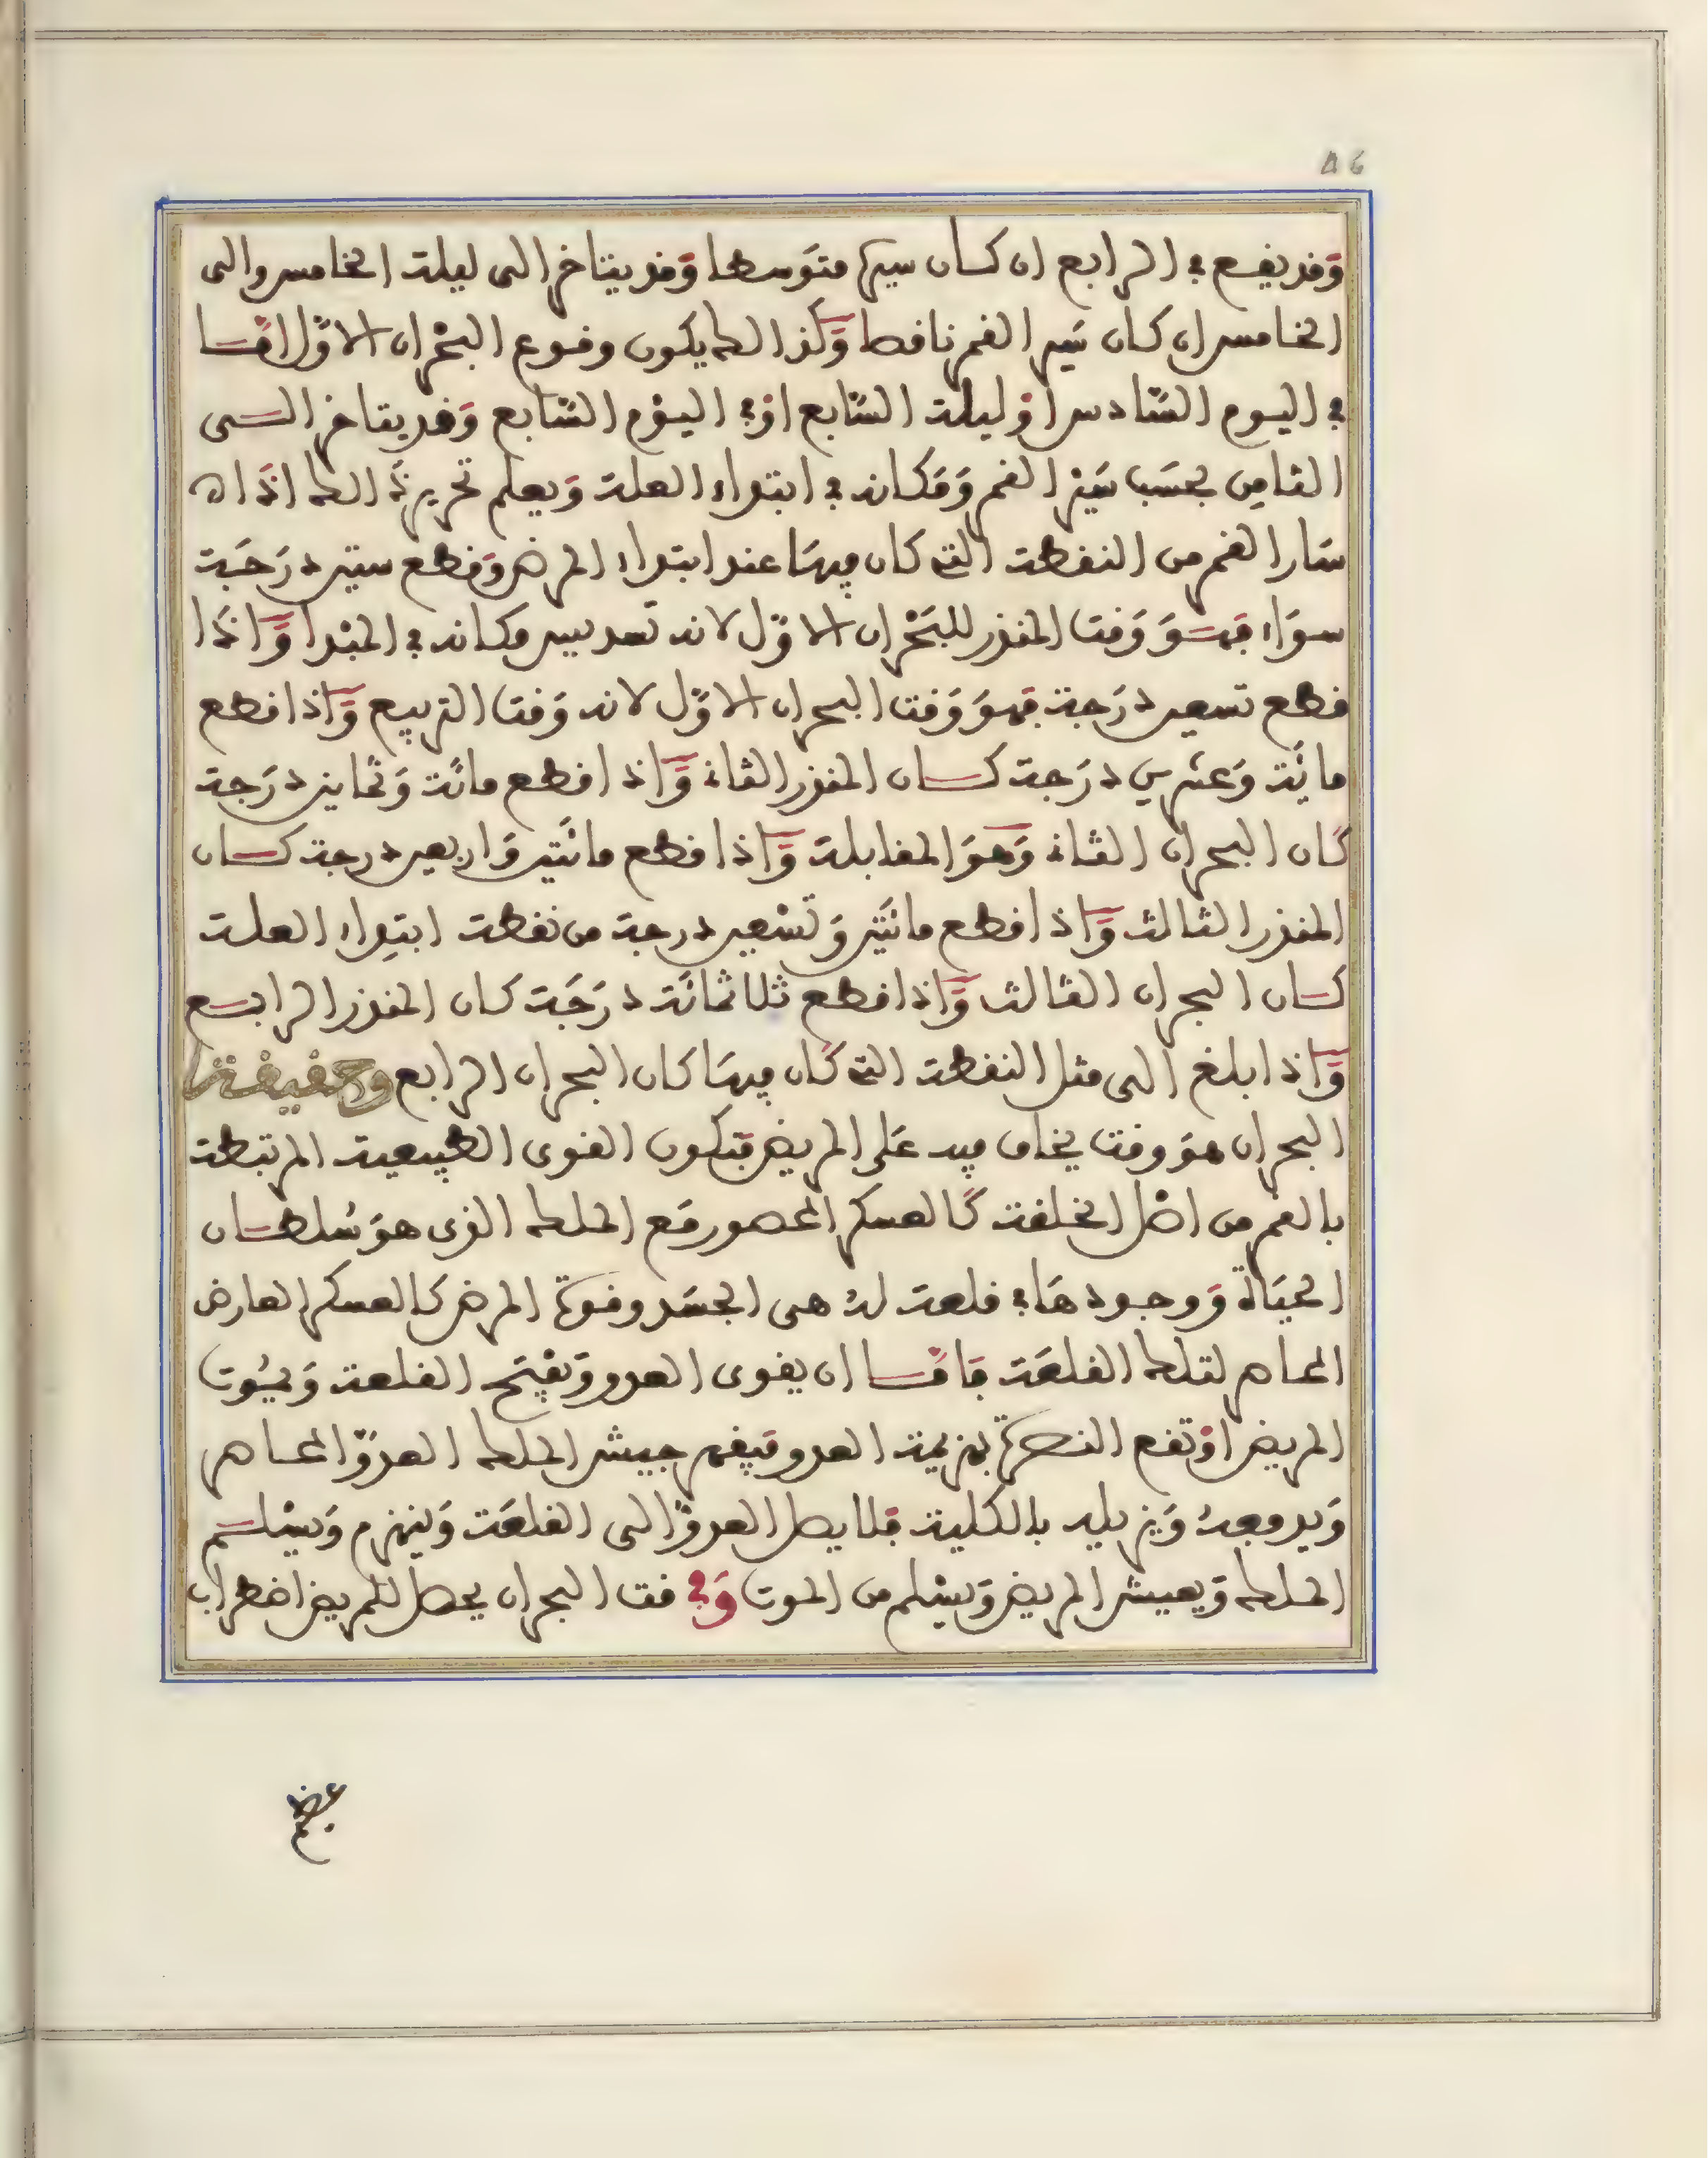 ٨٦
وَقد يقـع في الرابع ان كـان سيرها متوَسطا وَقد يتاخر الى ليلة الخامس والى
الخـامس ان كـان سَير القمر ناقصا وَكذالك يكون وقـوع البحْران الاوّل امّـا
في اليـوم السّادس اوْ ليلة السّابع اوْ في اليـوْم السّابع وَقد يتاخر الـى
الثامِن بحسَب سَيْر القمر وَمَكانه في ابتداء العلة وَيعلم تحرير ذَالك اذَا ان
سَار القمر من النقطة التي كان فيهَا عند ابتداء المرض وَقطع ستين درَجَة
سـوَاء فهـوَ وَقت المنذر للبَحْران الاوّل لانه تَسديس مكـانه في المبْدا وَاذَا
قطع تسعين درَجة فهوَ وَقت البحران الاوّل لانه وَقت التربيع وَاذا قطع
مائَة وَعشرين درَجة كـان المنذر الثاني وَاذا قطع مائة وَثمانين درَجة
كَان البحران الثـاني وَهوَ المقابلة وَاذا قطع مائتَين وَاربعين درجة كـان
المنذر الثـالث وَاذا قطع مائتَين وَتسْعين درجة من نقطة ابتِداء العلـة
كـان البحران الثـالث وَاذا قطع ثلاثمائَة درَجَة كـان المنذر الرابـع
وَاذا بلغ الى مثل النقطة التي كَان فيهَا كان البحران الرابع وحَقيقة
البحران هوَ وقت يخاف فيه عَلى المريض فتكون القوى الطبيعية المرتبطة
بالقمر من اصْل الخلقة كَالعسكر المحصور مَع الملك الذى هوَ سُلطـان
الحيَاة وَوجـودهَا في قلعة لهُ هى الجسَد وقـوة المرض كَالعسكر العارض
المحـاصر لتلك القلعَة فَامّـا ان يقوى العدو وَيفْتَح القلعة وَيمُوت
المريض اوْ تقع النصرة بهزيمة العدو فيقهر جيش الملك العدوّ المحـاصر
وَيدفعهُ وَيزيله بالكلية فلا يصل العدوّ الى القلعَة وَينهزم وَيسْلـم
الملك وَيعيش المريض وَيسْلم من المـوت وَفي قت البحران يحصل للمريض اضطراب
عظيم